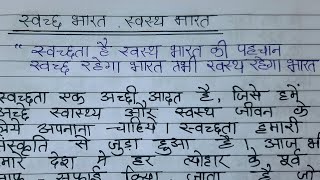 स्वच्छ भारत स्वस्थ भारत
" स्वच्छता है स्वस्थ भारत की पहचान
स्वच्छ रहेगा भारत तभी स्वस्थ रहेगा भारत
स्वच्छता एक अच्छी आदत है, जिसे हमें
अच्छे स्वास्थ्य और स्वस्थ जीवन के
लिये अपनाना चाहिये। स्वच्छता हमारी
संस्कृति से जुड़ा हुआ है। आज भी
हमारे देश में हर त्योहार के पूर्व
साफ - सफाई किया जाता है जो